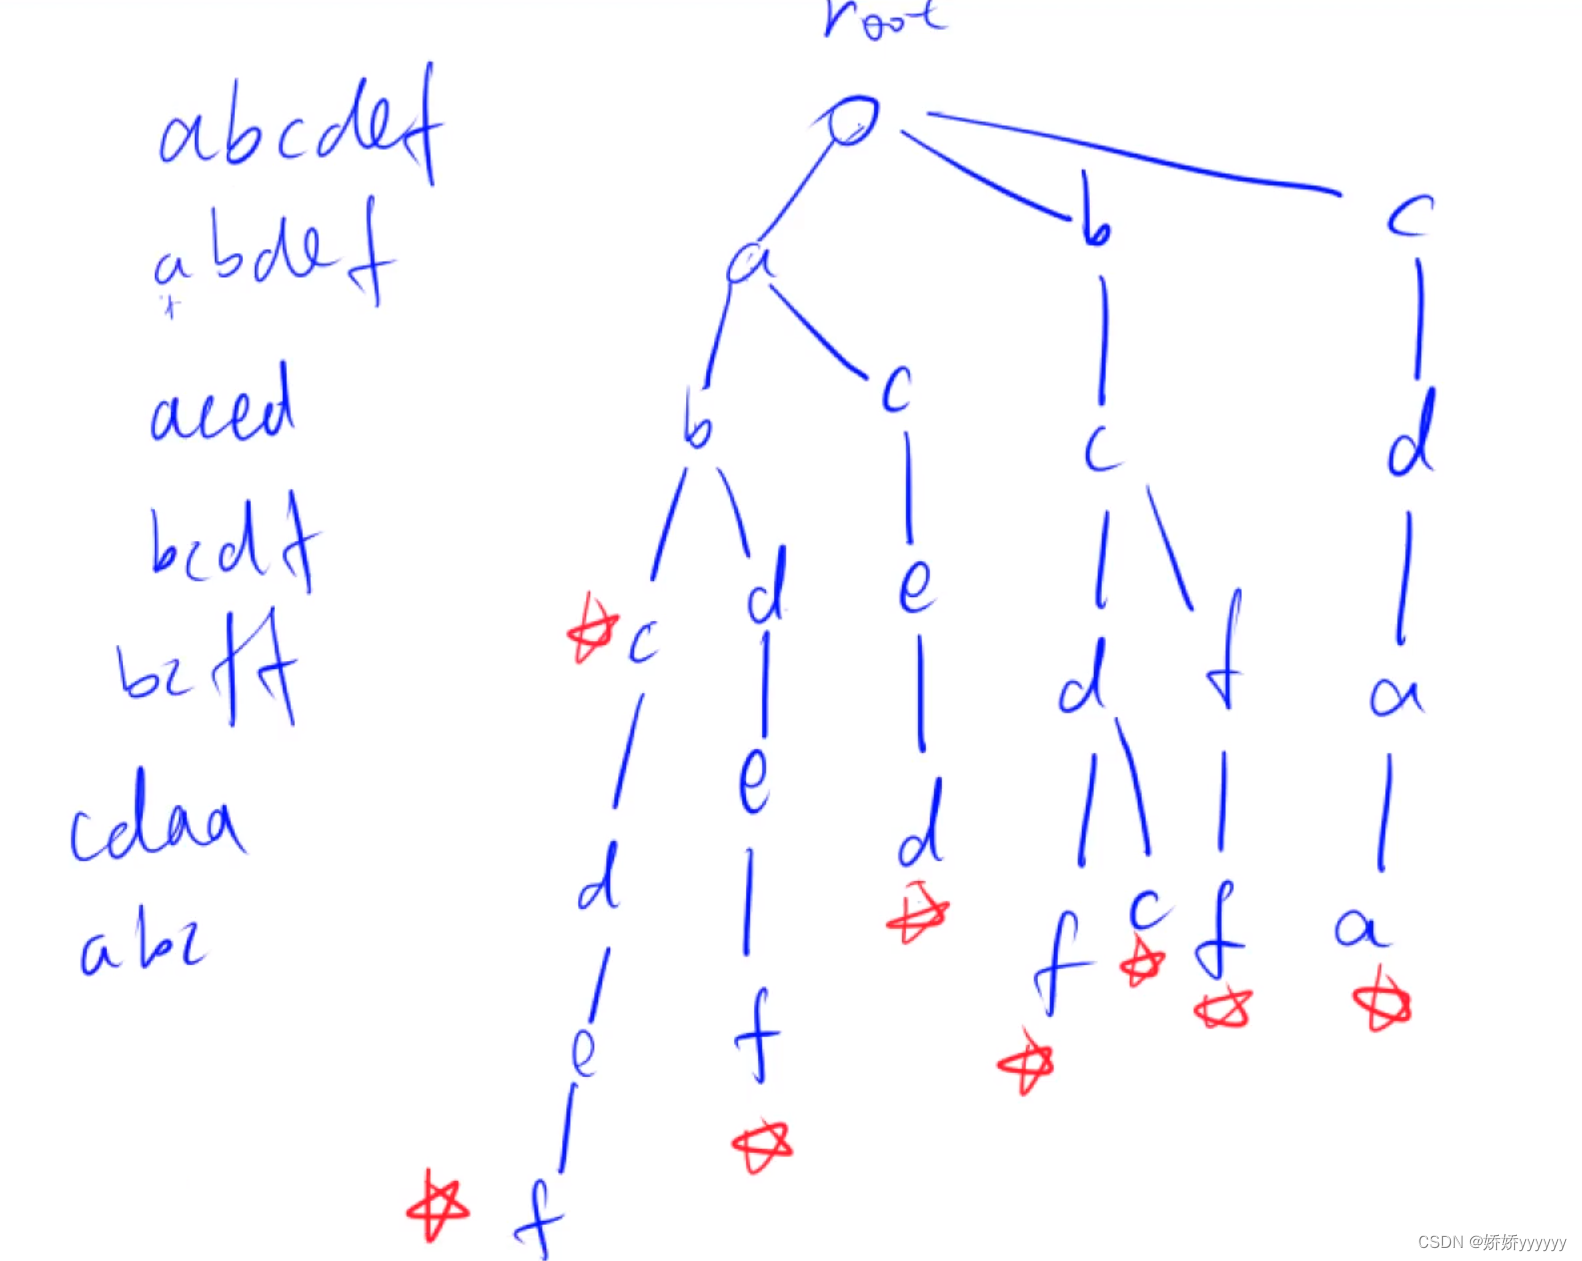 root
abcdef
abdef
aced
bcdf
bcff
cdaa
abc
a b c
b c c d
c d e d f a
d e d f c f a
e f
f
CSDN @娇娇yyyyyy